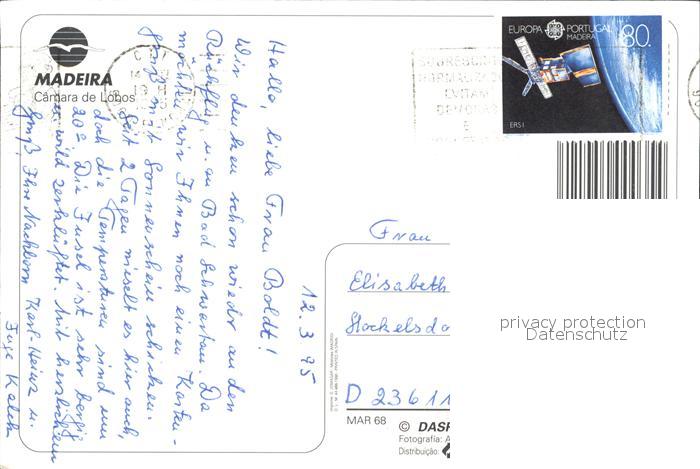 MADEIRA
Câmara de Lobos
12.3.95
Hallo, liebe Frau Boldt!
Wir denken schon wieder an den
Rückflug u. an Bad Schwartau. Da
möchten wir Ihnen noch einen Karten-
gruß mit Sonnenschein schicken.
Seit 2 Tagen nieselt es hier auch,
doch die Temperaturen sind um
20°. Die Insel ist sehr bergig
u. wild zerklüftet. Mit herzlichem
Gruß, Ihre Nachbarn Karl-Heinz u.
EUROPA PORTUGAL
MADEIRA
80.
ERS 1
SOBRESCRITOS
NORMALIZADOS
EVITAM
DEMORAS
E
Frau
Elisabeth
Stockelsdo
D 23611
privacy protection
Datenschutz
MAR 68
© DASP
Fotografia: A
Distribuição: